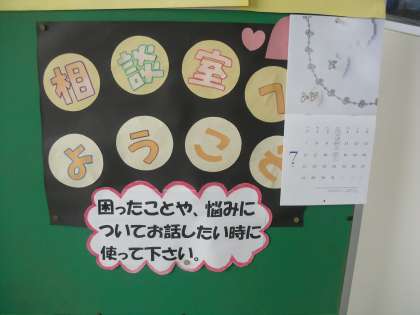 相談室へ
ようこそ
困ったことや、悩みに
ついてお話したい時に
使って下さい。
7